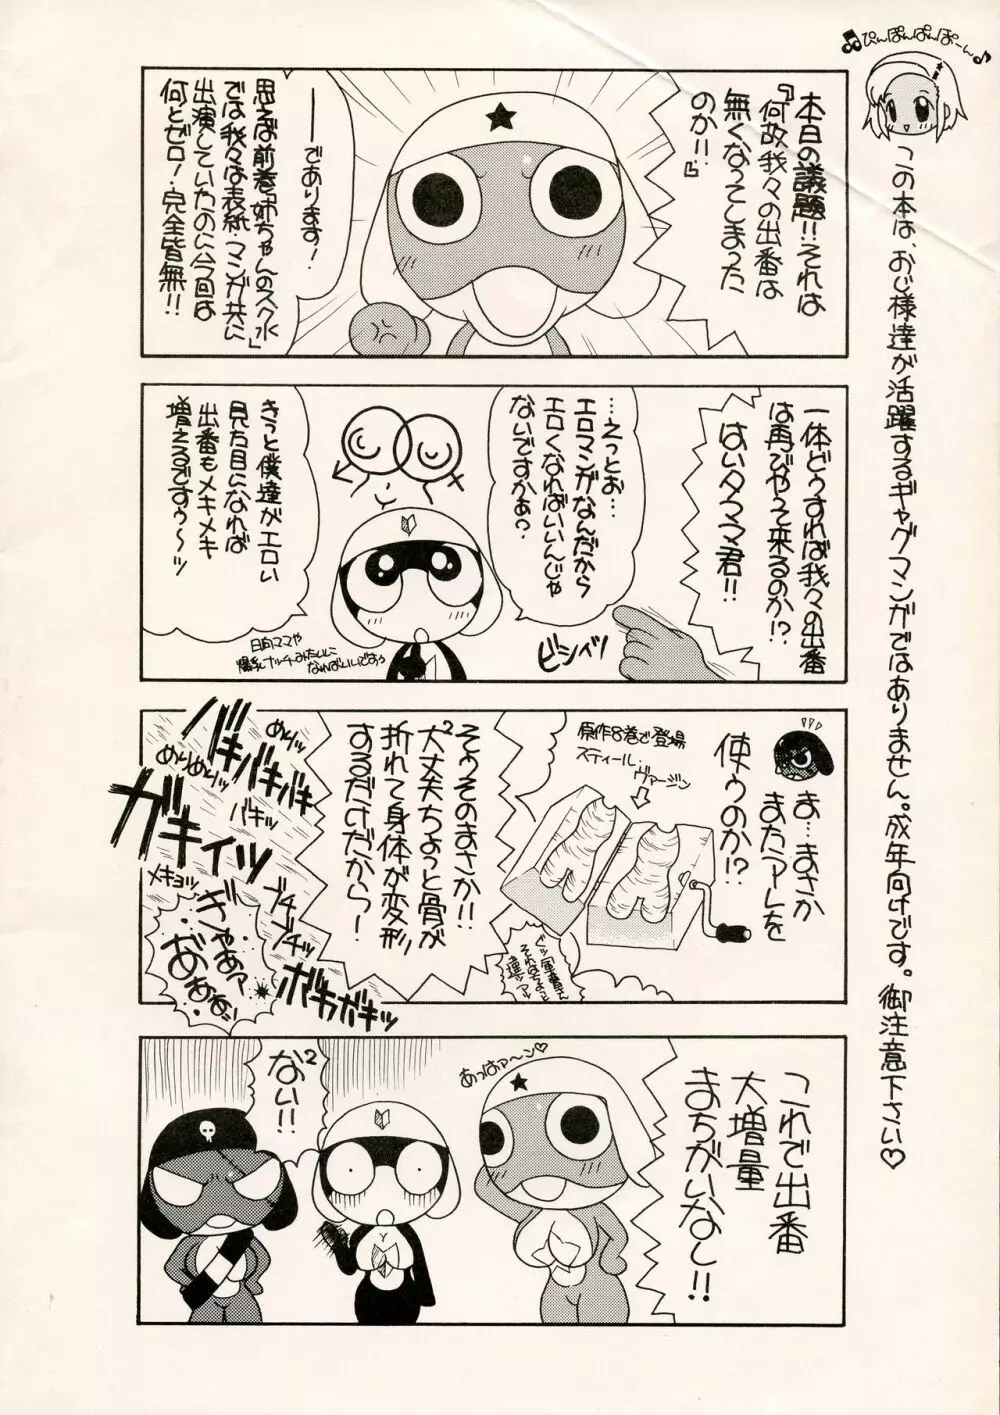 ♪ぴんぽんぱんぽーん♪
この本は、おじ様達が活躍するギャグマンガではありません。成年向けです。御注意下さい♡
本日の議題!!それは
『何故我々の出番は
無くなってしまった
のか!!』
――であります!
思えば前巻『姉ちゃんのスク水』
では我々は表紙・マンガ共に
出演していたのに今回は
何とゼロ!完全皆無!!
一体どうすれば我々の出番
は再びやって来るのか!?
はいタママ君!!
…えっとお…
エロマンガなんだから
エロくなればいいんじゃ
ないですかぁ?
ビシィッ
きっと僕達がエロい
見た目になれば
出番もメキメキ
増えるですぅ~ッ
日向ママや
爆乳ナッチーみたいに
なればいいですぅ
ま…まさか
またアレを
使うのか!?
原作8巻で登場
スティール・
ヴァージン
そぅそのまさか!!
大丈夫2ちょっと骨が
折れて身体が変形
するだけだから!
ぐッ軍曹さん
それはちょっと
違ッアッ
めりッ
バキバキバキ
めりめりッ
バキッ
ガキィッ
メキョッ
ブチブチブチッ
ボキボキッ
ぎゃあァ
あああ
これで出番
大増量
まちがいなし!!
あっはァ~ン♡
ない2!!